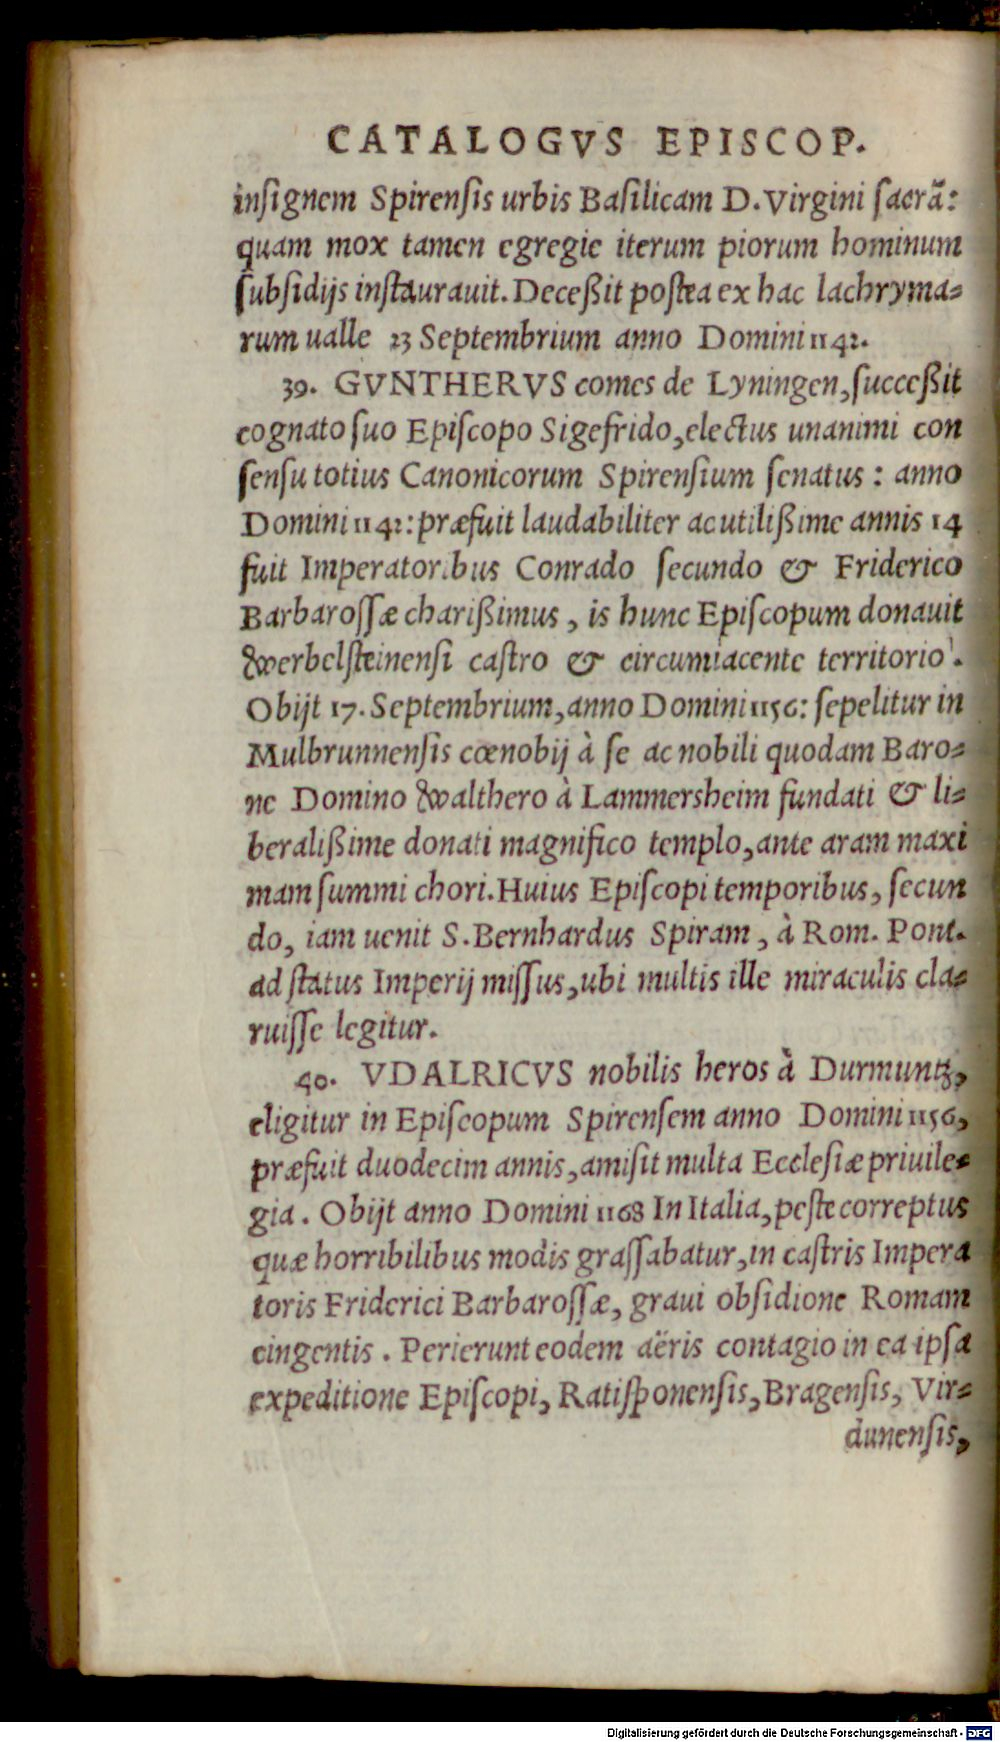 CATALOGVS EPISCOP.
insignem Spirensis urbis Basilicam D. Virgini sacrã:
quam mox tamen egregie iterum piorum hominum
subsidijs instaurauit. Deceßit postea ex hac lachryma-
rum ualle 23 Septembrium anno Domini 1142.
39. GVNTHERVS comes de Lyningen, succeßit
cognato suo Episcopo Sigefrido, electus unanimi con
sensu totius Canonicorum Spirensium senatus: anno
Domini 1142: præfuit laudabiliter ac utilißime annis 14
fuit Imperatoribus Conrado secundo & Friderico
Barbarossæ charißimus, is hunc Episcopum donauit
Werbelsteinensi castro & circumiacente territorio.
Obijt 17. Septembrium, anno Domini 1156: sepelitur in
Mulbrunnensis cœnobij à se ac nobili quodam Baro-
ne Domino Walthero à Lammersheim fundati & li-
beralißime donati magnifico templo, ante aram maxi
mam summi chori. Huius Episcopi temporibus, secun
do, iam uenit S. Bernhardus Spiram, à Rom. Pont.
ad status Imperij missus, ubi multis ille miraculis cla-
ruisse legitur.
40. VDALRICVS nobilis heros à Durmuntz,
eligitur in Episcopum Spirensem anno Domini 1156,
præfuit duodecim annis, amisit multa Ecclesiæ priuile-
gia. Obijt anno Domini 1168 In Italia, peste correptus
quæ horribilibus modis grassabatur, in castris Impera
toris Friderici Barbarossæ, graui obsidione Romam
cingentis. Perierunt eodem aëris contagio in ea ipsa
expeditione Episcopi, Ratisponensis, Bragensis, Vir-
dunensis,
Digitalisierung gefördert durch die Deutsche Forschungsgemeinschaft - DFG